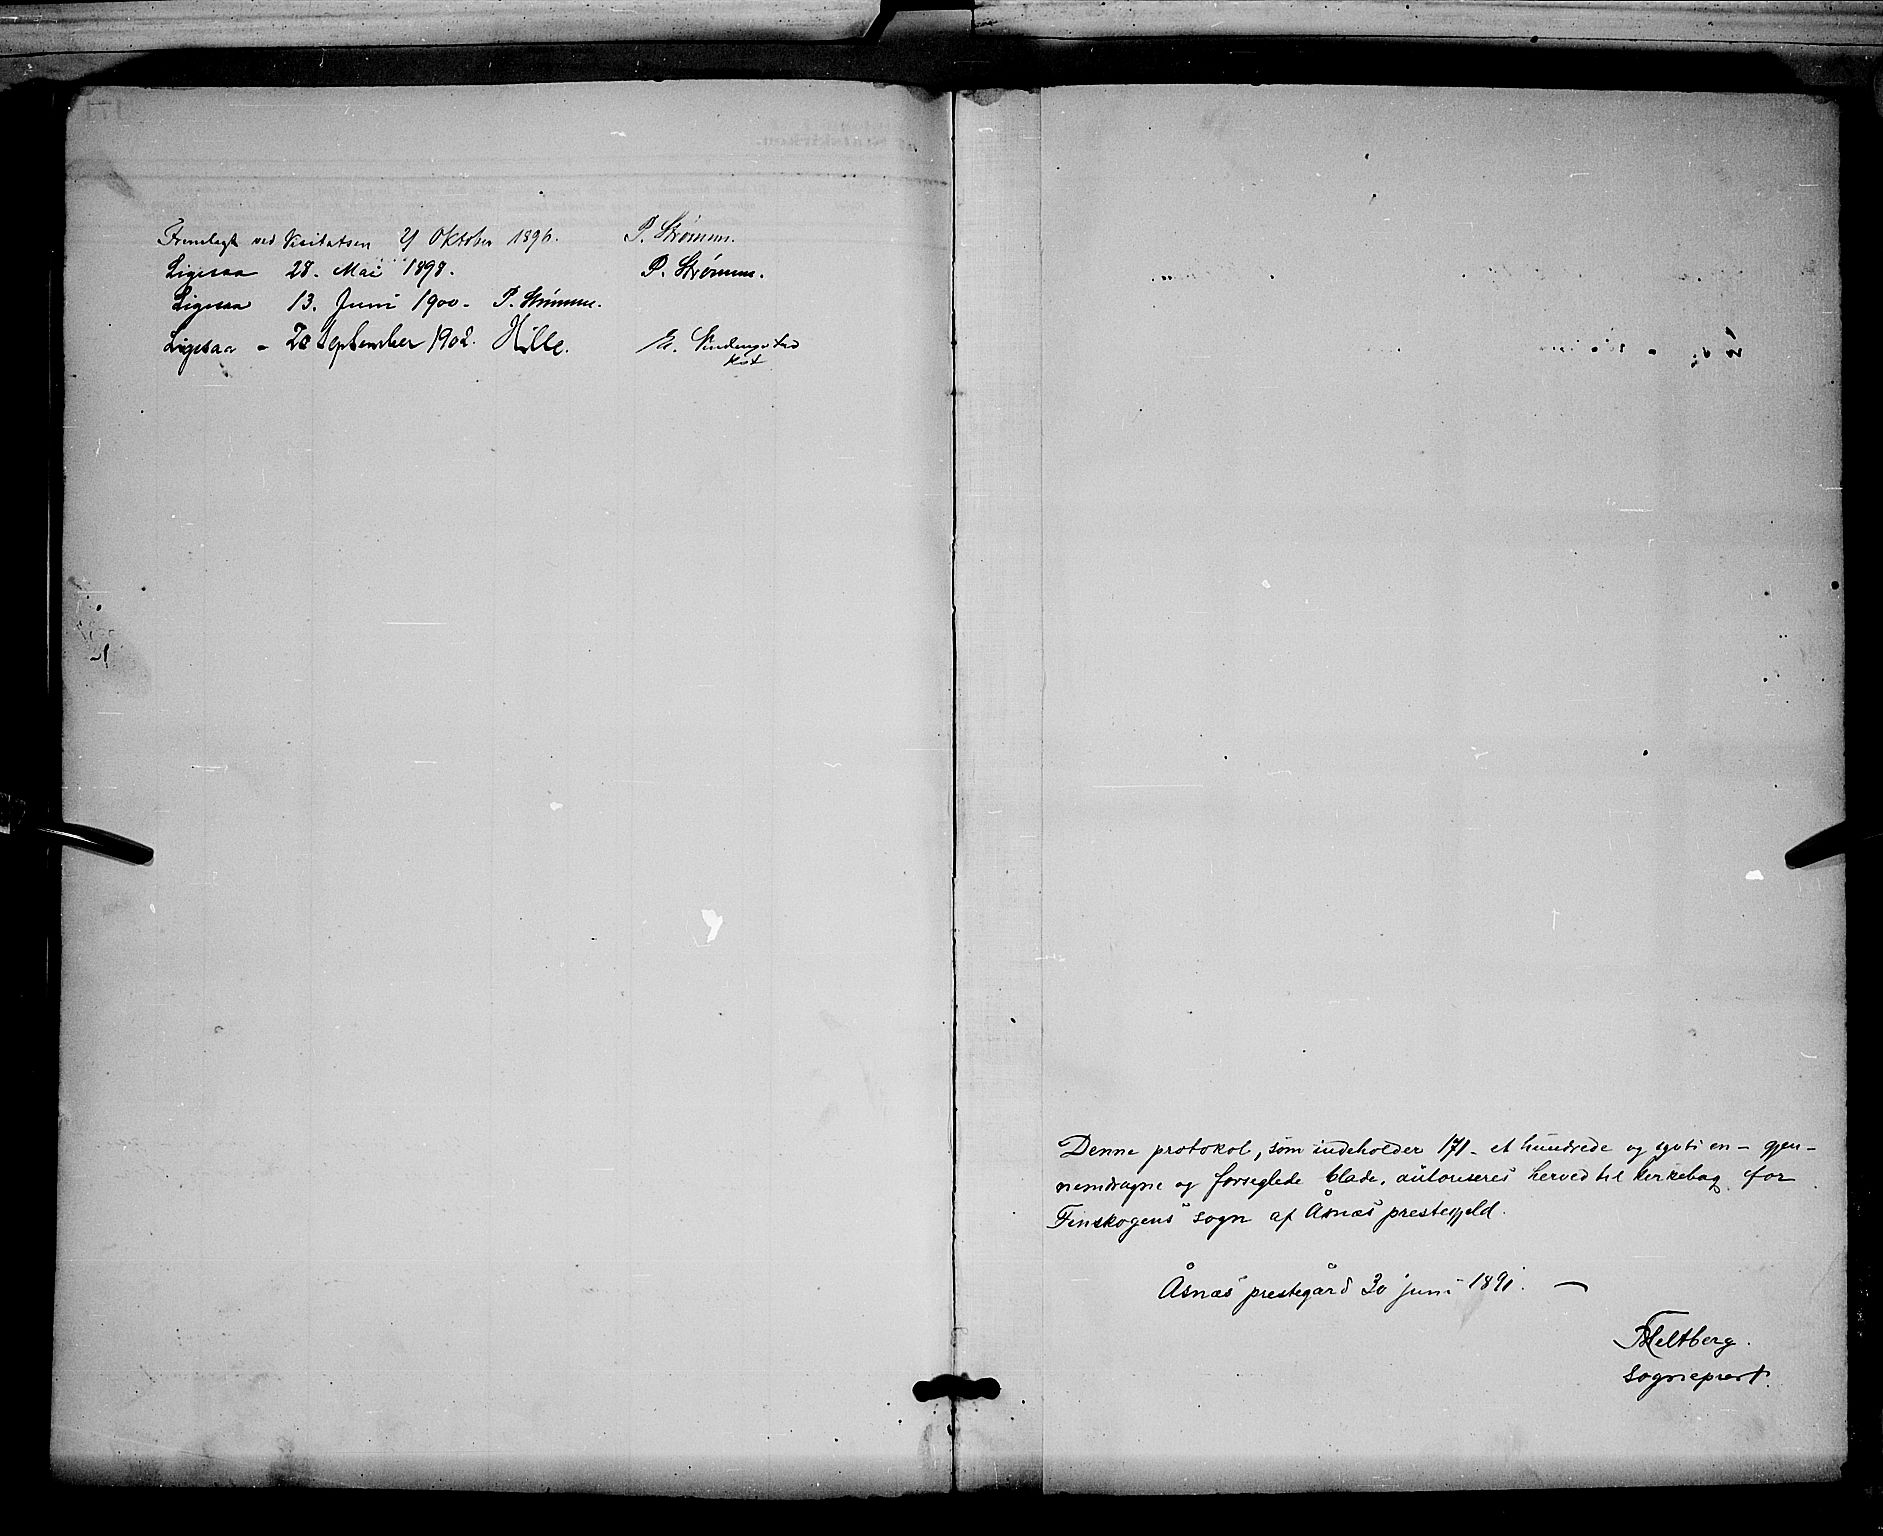 Fremlagt ved Visitatsen 21 Oktober 1896. P. Strømme.
Ligesaa 28. Mai 1898. P. Strømme.
Ligesaa 13. Juni 1900 - P. Strømme.
Ligesaa - 20 September 1902. Hille.
Denne protokol, som indeholder 171 - et hundrede og sytti en - gjen-
nemdragne og forseglede blade, autoriseres herved til kirkebog for
Finskogens sogn af Åsnæs prestegjeld.
Åsnæs prestegård 30 juni 1891. —
Heltberg.
Sogneprest.